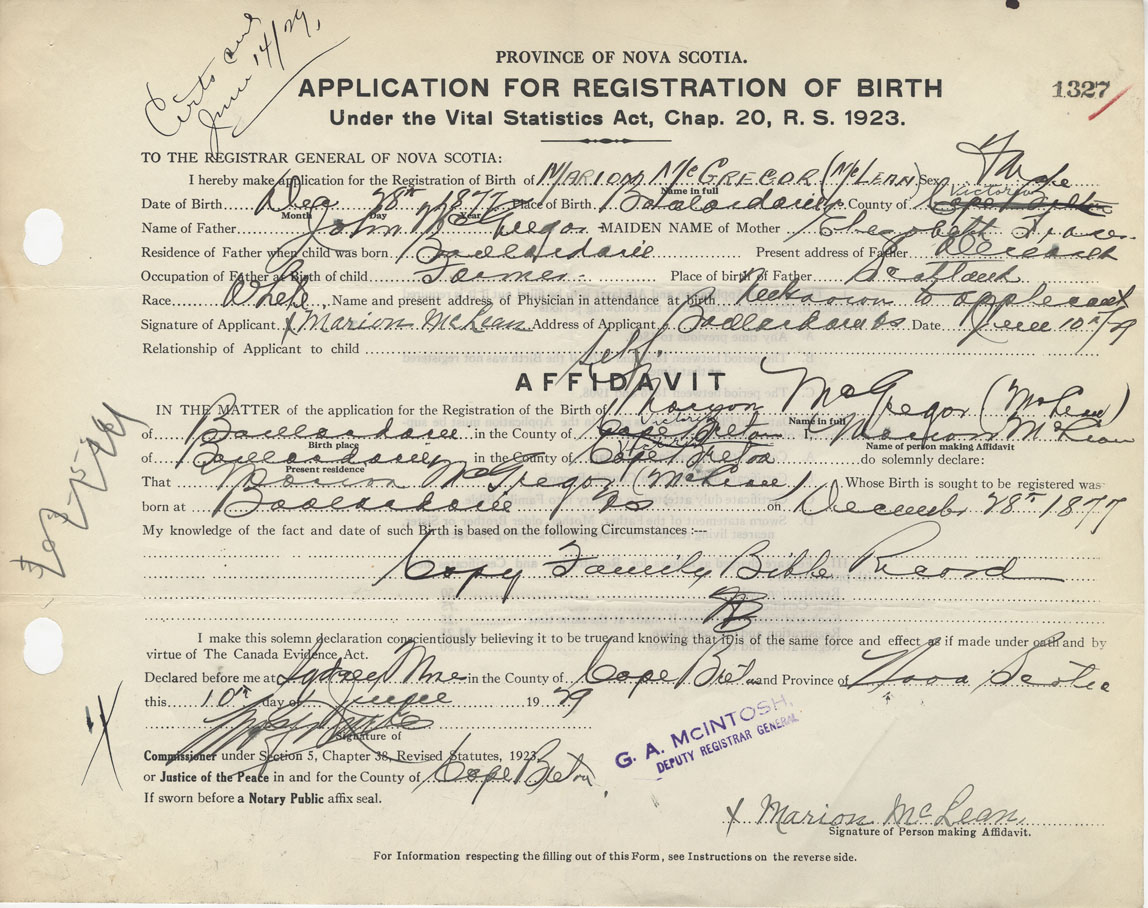 Certs
June 14/29,
PROVINCE OF NOVA SCOTIA.
APPLICATION FOR REGISTRATION OF BIRTH
1327
Under the Vital Statistics Act, Chap. 20, R. S. 1923.
TO THE REGISTRAR GENERAL OF NOVA SCOTIA:
I hereby make application for the Registration of Birth of MARION McGREGOR (McLEAN) Sex
Name in full
Victoria
Date of Birth Dec 28th 1877 Place of Birth County of Cape Breton
Month Day Year
Name of Father John McGregor MAIDEN NAME of Mother Elizabeth
Residence of Father when child was born Present address of Father Deceased
Occupation of Father at Birth of child Farmer Place of birth of Father Scotland
Race White Name and present address of Physician in attendance at birth to applicant
Signature of Applicant x Marion McLean Address of Applicant Date June 10th/29
Relationship of Applicant to child Self
AFFIDAVIT
IN THE MATTER of the application for the Registration of the Birth of Marion McGregor (McLean)
Name in full
Victoria
of in the County of Cape Breton I, Marion McLean
Birth place Name of person making Affidavit
Victoria
of in the County of Cape Breton do solemnly declare:
Present residence
That Marion McGregor (McLean) Whose Birth is sought to be registered was
born at NS on December 28th 1877
My knowledge of the fact and date of such Birth is based on the following Circumstances :—
Copy Family Bible Record
I make this solemn declaration conscientiously believing it to be true and knowing that it is of the same force and effect as if made under oath and by
virtue of The Canada Evidence Act.
Declared before me at Sydney Mines in the County of Cape Breton and Province of Nova Scotia
this 10th day of June 1929
Signature of
G. A. McINTOSH,
DEPUTY REGISTRAR GENERAL
Commissioner under Section 5, Chapter 38, Revised Statutes, 1923,
or Justice of the Peace in and for the County of Cape Breton
If sworn before a Notary Public affix seal.
x Marion McLean.
Signature of Person making Affidavit.
For Information respecting the filling out of this Form, see Instructions on the reverse side.